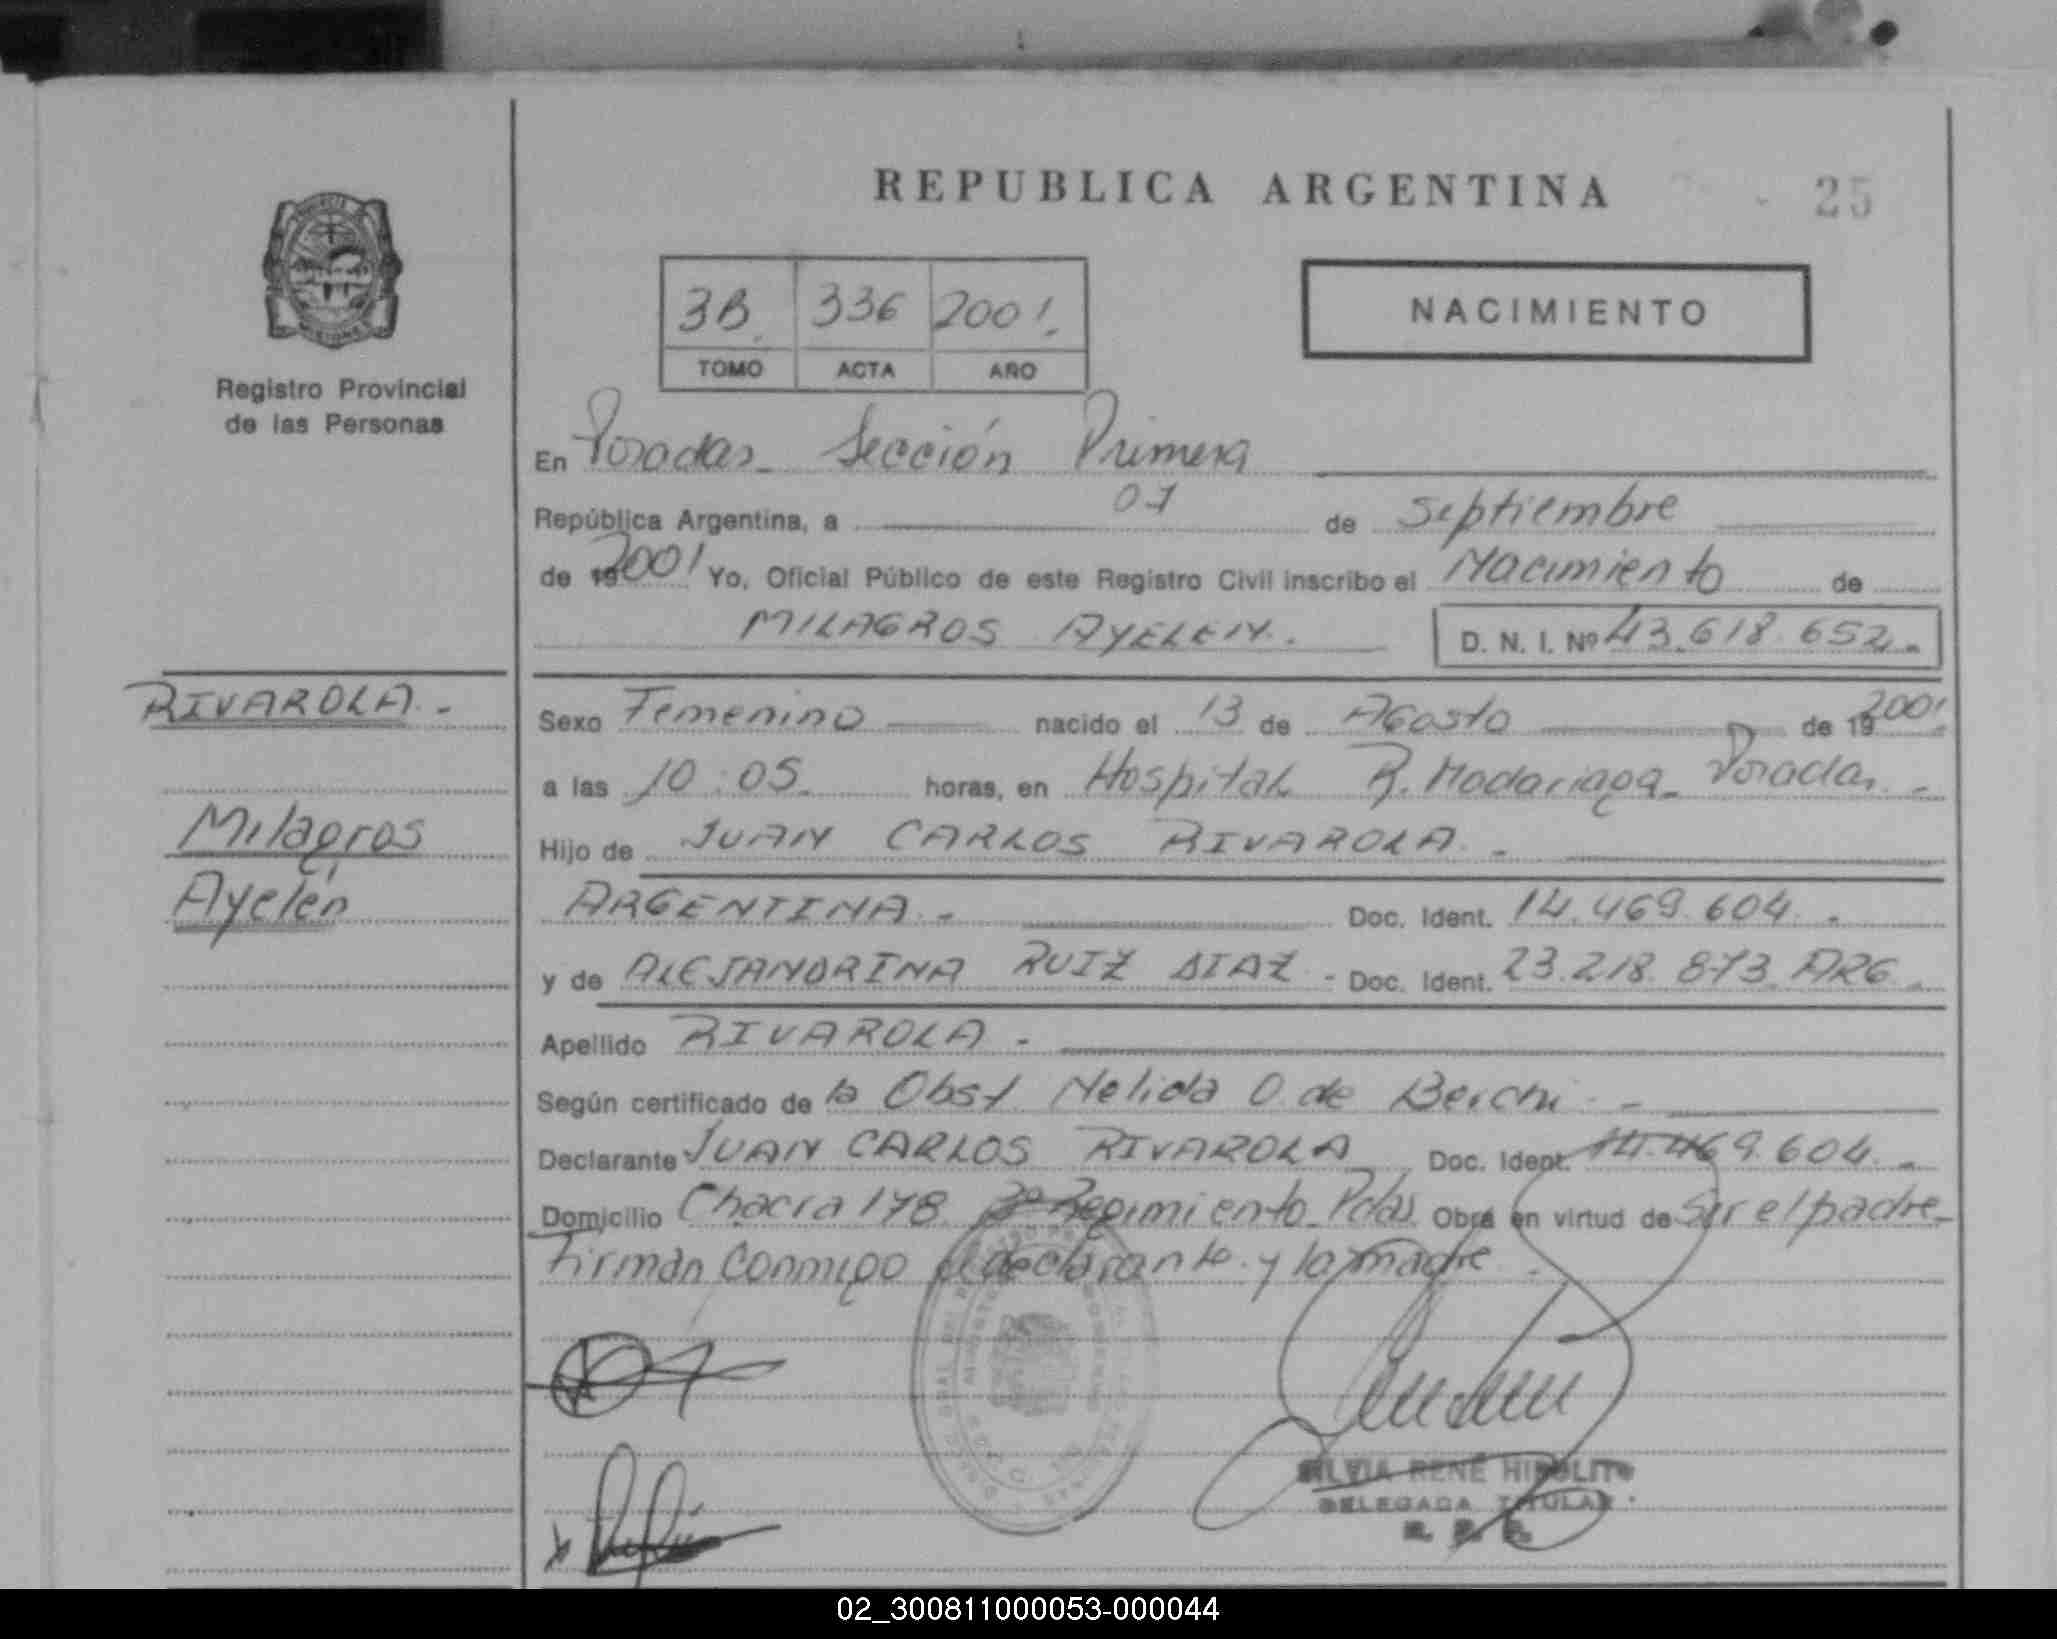 REPUBLICA ARGENTINA
25
3B. 336 2001.
TOMO ACTA AÑO
NACIMIENTO
Registro Provincial
de las Personas
En Posadas Sección Primera
República Argentina, a 07 de Septiembre
de 19 2001 Yo, Oficial Público de este Registro Civil inscribo el Nacimiento de
MILAGROS AYELEN. D. N. I. Nº 43.618.652.
RIVAROLA.-
Sexo Femenino nacido el 13 de Agosto de 19 2001
a las 10:05. horas, en Hospital R. Madariaga Posadas.-
Milagros
Hijo de JUAN CARLOS RIVAROLA.-
Ayelén
ARGENTINA.- Doc. Ident. 14.469.604.-
y de ALEJANDRINA RUIZ DIAZ - Doc. Ident. 23.218.873 ARG.
Apellido RIVAROLA.-
Según certificado de la Obst Nelida O. de Berchi.-
Declarante JUAN CARLOS RIVAROLA Doc. Ident. 14.469.604.-
Domicilio Chacra 178 Regimiento Pdas. Obra en virtud de Ser el padre-
Firman Conmigo el declarante y la madre.
SILVIA RENÉ HIPOLITO
DELEGADA TITULAR
R. P. P.
02_300811000053-000044